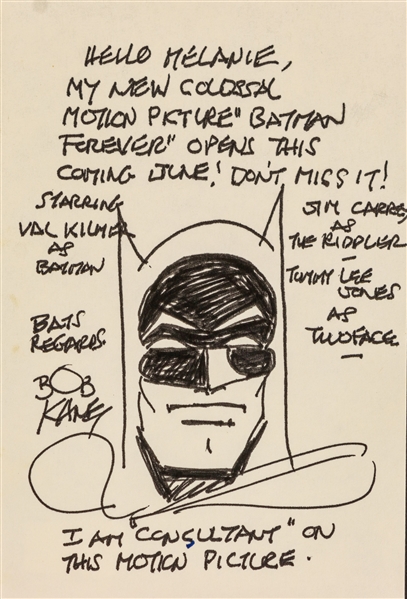 HELLO MELANIE,
MY NEW COLOSSAL
MOTION PICTURE "BATMAN
FOREVER" OPENS THIS
COMING JUNE! DON'T MISS IT!
STARRING
VAL KILMER
AS
BATMAN
JIM CARREY
AS
THE RIDDLER
—
TOMMY LEE
JONES
AS
TWOFACE
—
BATS
REGARDS
BOB
KANE
I AM "CONSULTANT" ON
THIS MOTION PICTURE.